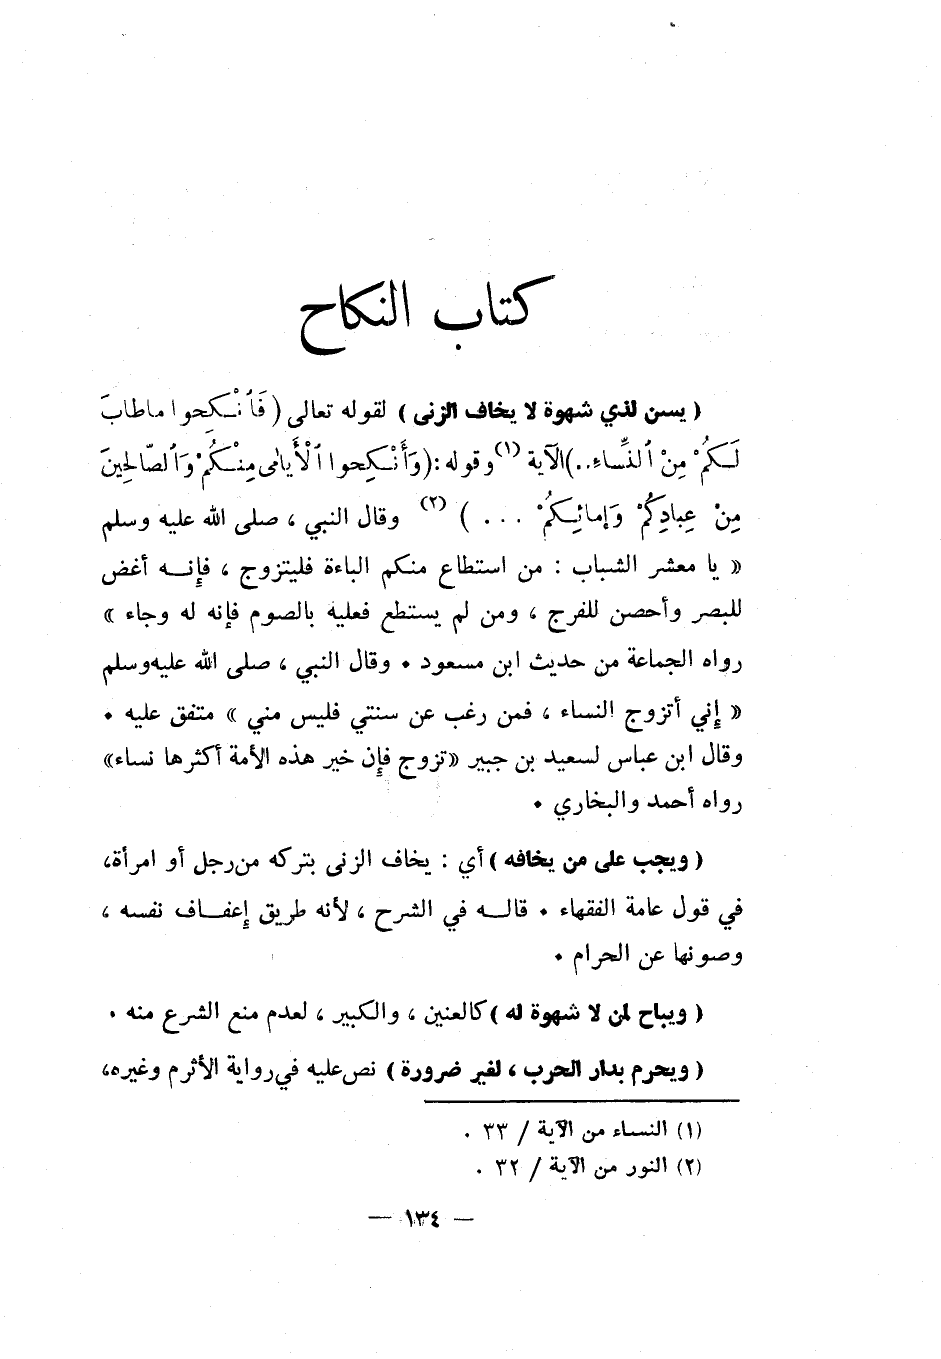 كتاب النكاح
( يسن لذي شهوة لا يخاف الزنى ) لقوله تعالى ( فَٱنْكِحوا ماطابَ
لَكُمْ مِنْ ٱلنِّساءِ..)الآية (١) وقوله :(وَأَنْكِحوا ٱلْأَيامٰى مِنْكُمْ وَٱلصّالِحِينَ
مِنْ عِبادِكُمْ وَإِمائِكُمْ ... ) (٢) وقال النبي ، صلى الله عليه وسلم
« يا معشر الشباب : من استطاع منكم الباءة فليتزوج ، فإنه أغض
للبصر وأحصن للفرج ، ومن لم يستطع فعليه بالصوم فإنه له وجاء »
رواه الجماعة من حديث ابن مسعود . وقال النبي ، صلى الله عليه وسلم
« إني أتزوج النساء ، فمن رغب عن سنتي فليس مني » متفق عليه .
وقال ابن عباس لسعيد بن جبير «تزوج فإن خير هذه الأمة أكثرها نساء»
رواه أحمد والبخاري .
( ويجب على من يخافه ) أي : يخاف الزنى بتركه من رجل أو امرأة،
في قول عامة الفقهاء . قاله في الشرح ، لأنه طريق إعفاف نفسه ،
وصونها عن الحرام .
( ويباح لمن لا شهوة له ) كالعنين ، والكبير ، لعدم منع الشرع منه .
( ويحرم بدار الحرب ، لغير ضرورة ) نص عليه في رواية الأثرم وغيره،
(١) النساء من الآية / ٣٣ .
(٢) النور من الآية / ٣٢ .
— ١٣٤ —